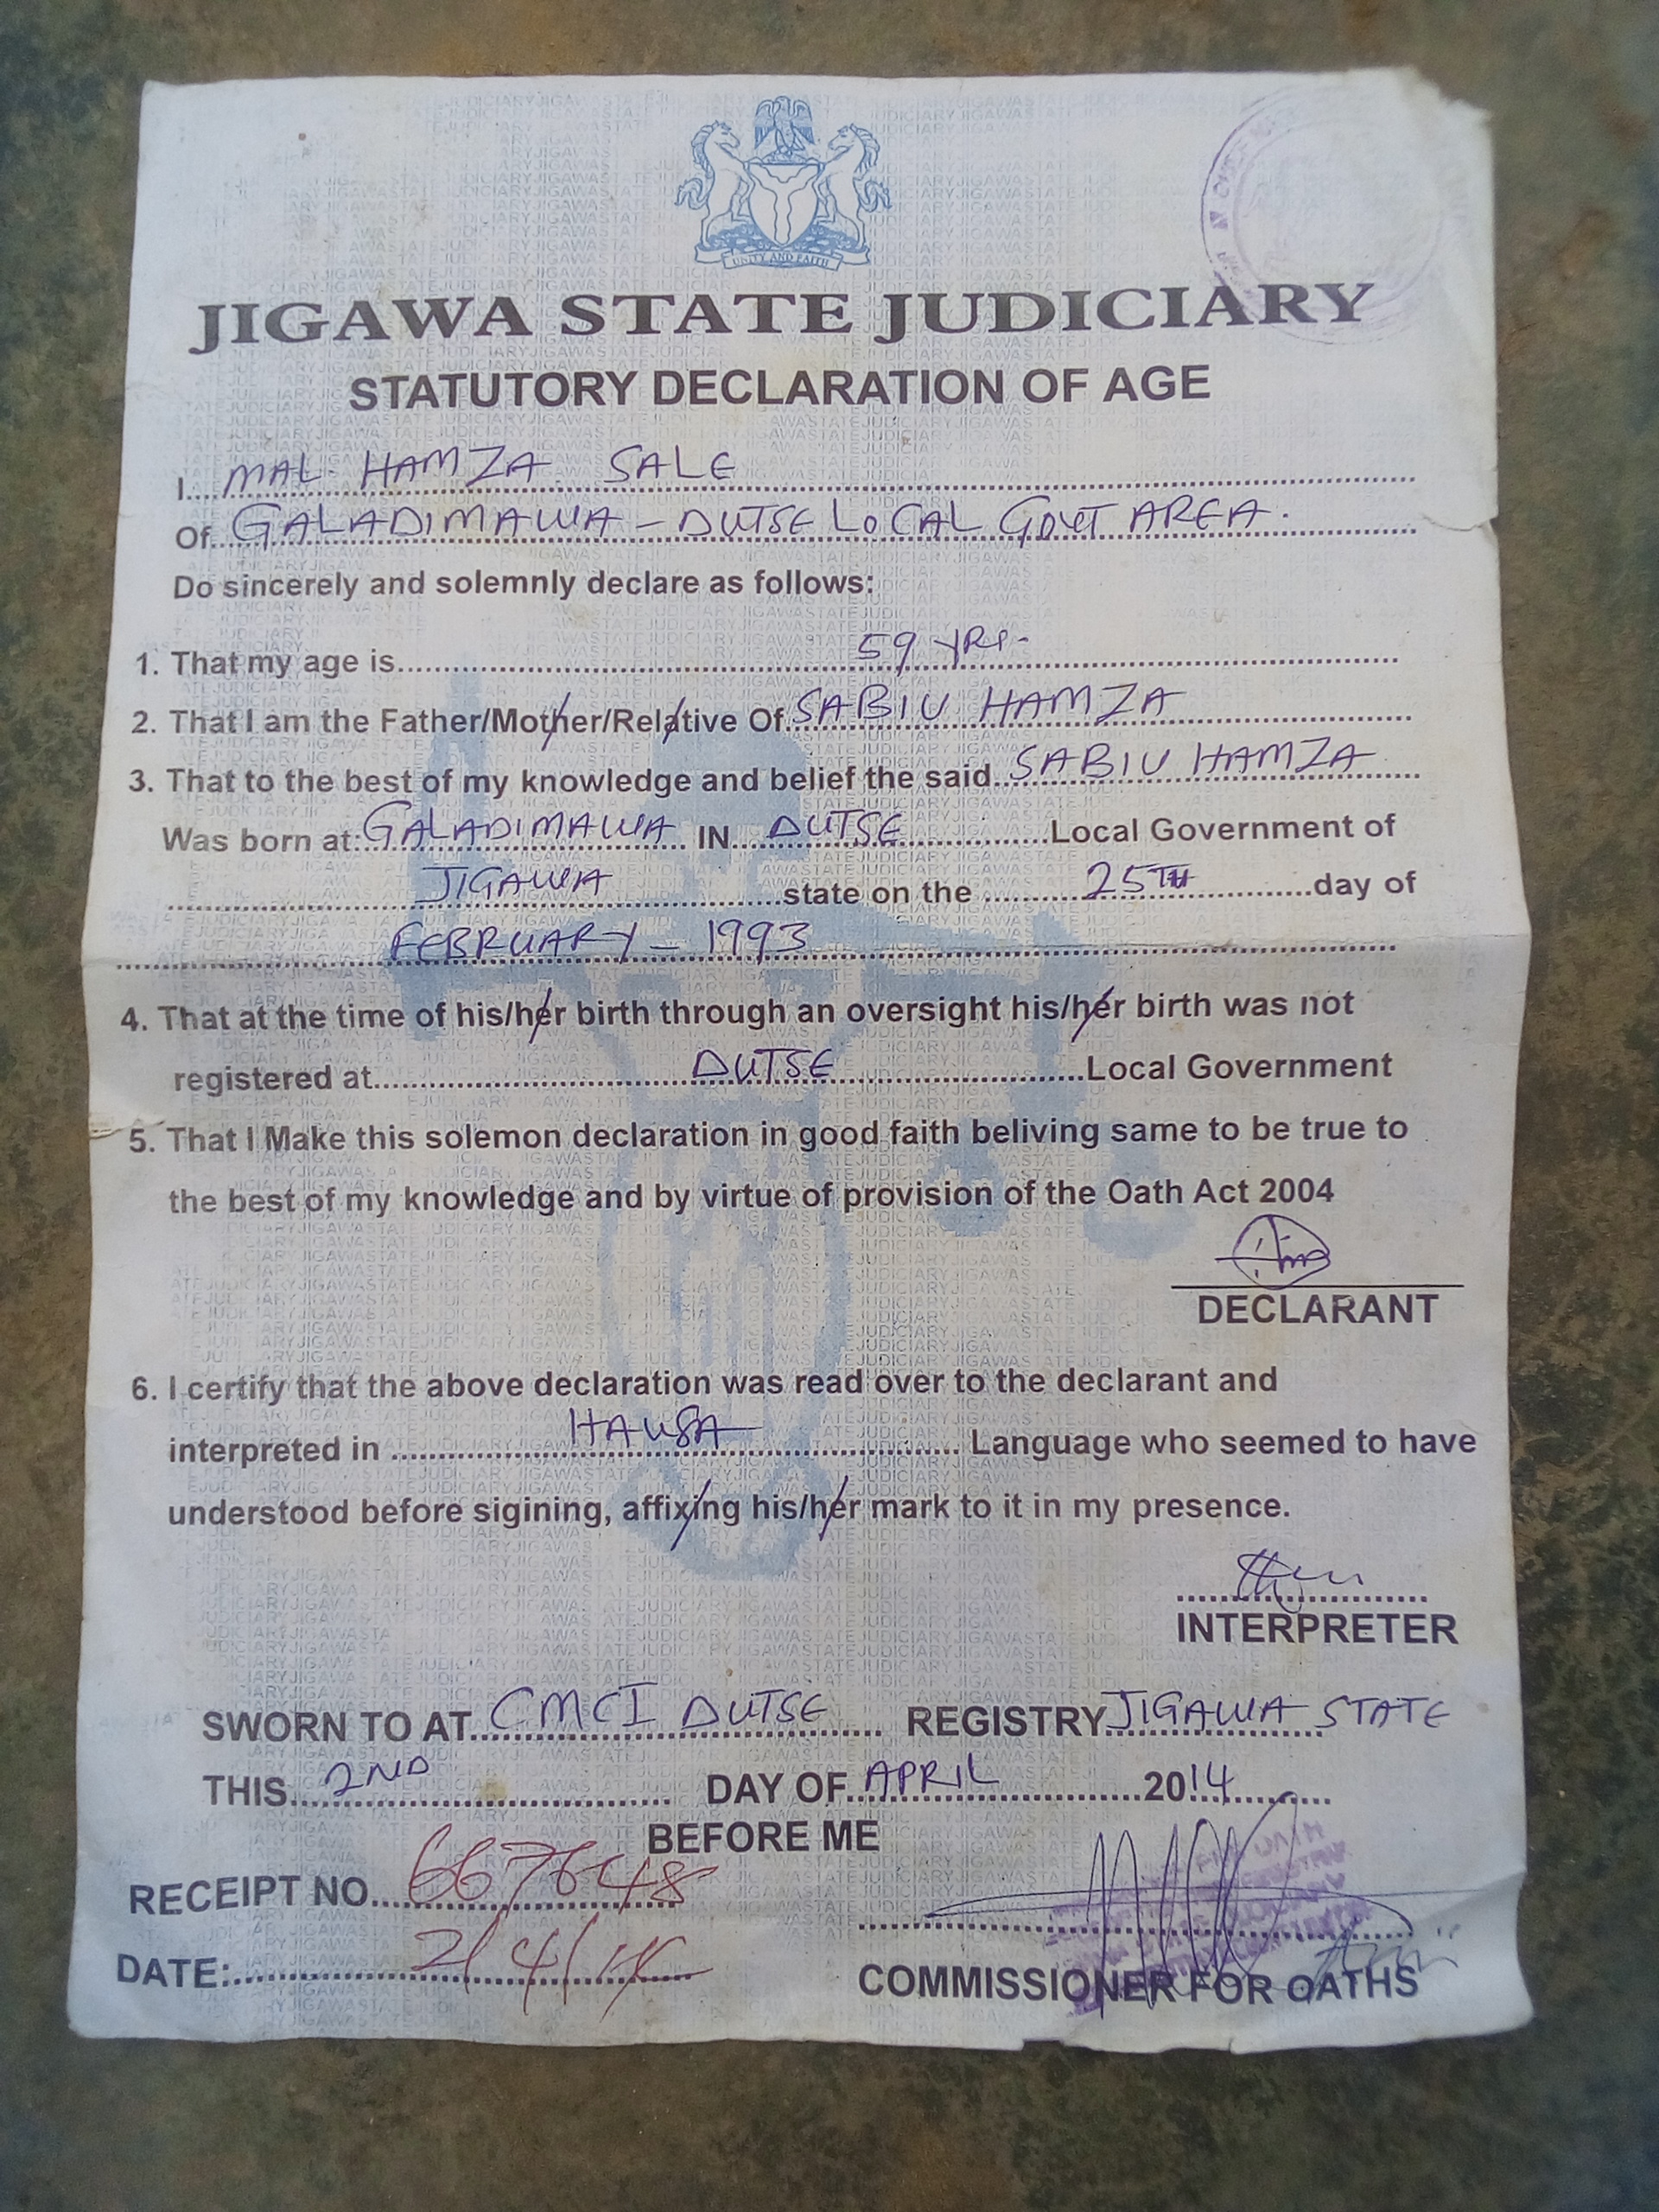 UNITY AND FAITH
JIGAWA STATE JUDICIARY
STATUTORY DECLARATION OF AGE
I.... MAL. HAMZA SALE
Of... GALADIMAWA - DUTSE LOCAL GOVT AREA.
Do sincerely and solemnly declare as follows:
1. That my age is... 59 YRS-
2. That I am the Father/Mother/Relative Of... SABIU HAMZA
3. That to the best of my knowledge and belief the said... SABIU HAMZA
Was born at:... GALADIMAWA IN... DUTSE ...Local Government of
... JIGAWA ...state on the ... 25TH ...day of
... FEBRUARY - 1993
4. That at the time of his/her birth through an oversight his/her birth was not
registered at... DUTSE ...Local Government
5. That I Make this solemon declaration in good faith beliving same to be true to
the best of my knowledge and by virtue of provision of the Oath Act 2004
DECLARANT
6. I certify that the above declaration was read over to the declarant and
interpreted in ... HAUSA ... Language who seemed to have
understood before sigining, affixing his/her mark to it in my presence.
INTERPRETER
SWORN TO AT... CMCI DUTSE ... REGISTRY... JIGAWA STATE
THIS... 2ND ... DAY OF... APRIL ...2014...
BEFORE ME
RECEIPT NO... 667648
DATE:... 2/4/14
COMMISSIONER FOR OATHS